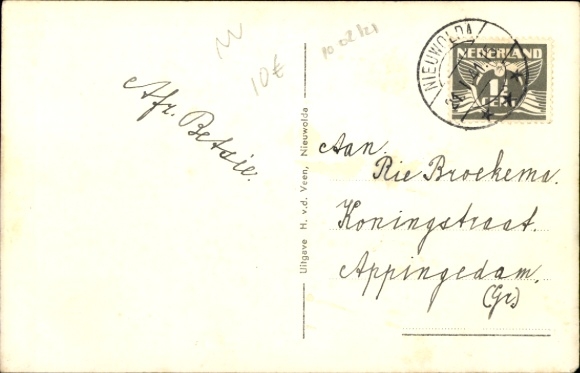 10€
10 02 121
NIEUWOLDA
NEDERLAND
1½
CENT
Afz. Betsie.
Uitgave H. v.d. Veen, Nieuwolda
Aan.
Rie Broekema.
Koningstraat.
Appingedam.
(Gr)